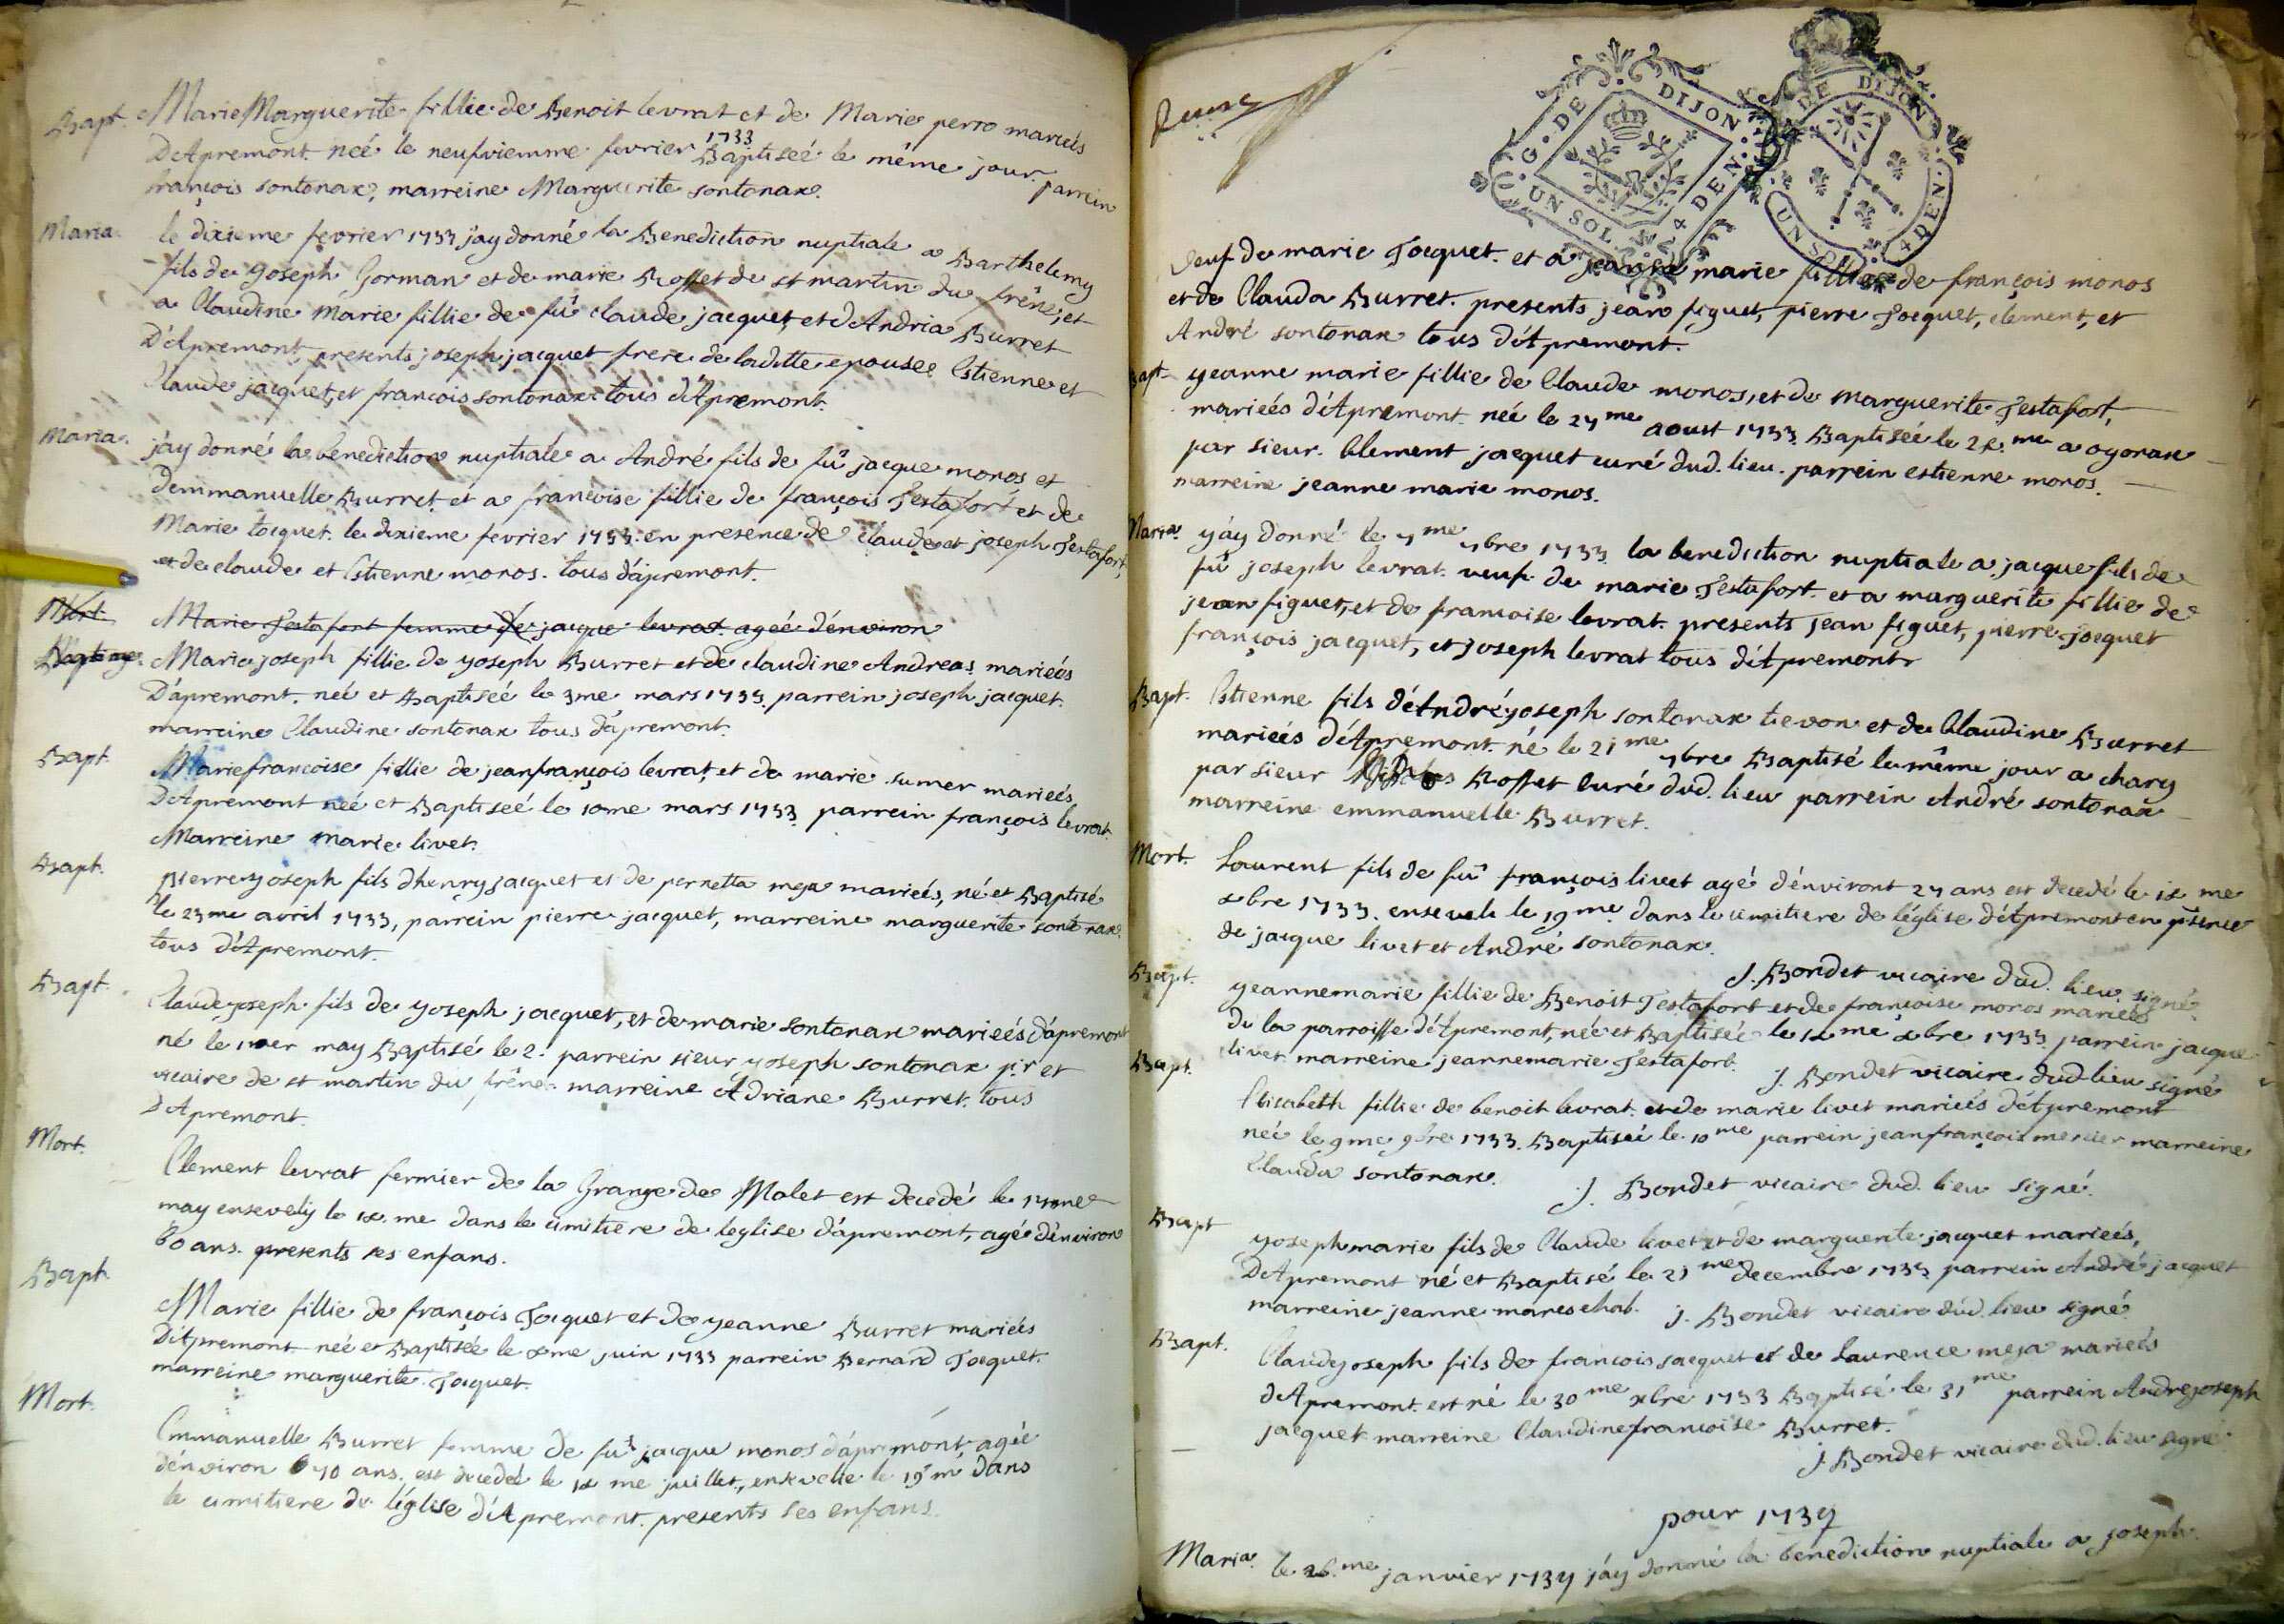 Bapt. Marie Marguerite fillie de Benoit levrat et de Marie perro mariés
D'Apremont neé le neufviemme fevrier 1733 Baptiseé le même jour. parrein
françois sontonax, marreine Marguerite sontonax.
Maria. le dixieme fevrier 1733 j'ay donné la Benediction nuptiale a Barthelemy
fils de Joseph Gorman et de marie Rosset de st martin du frêne, et
a Claudine Marie fillie de fû claude jacquet et d'Andria Burret
D'Apremont, presents joseph jacquet frere de laditte epousee Estienne et
Claude jacquet, et françois sontonax tous d'Apremont.
Maria. j'ay donné la benediction nuptiale a André fils de fû jacque monos et
demmanuelle Burret, et a francoise fillie de françois Testafort et de
Marie tocquet. le dixieme fevrier 1733. en presence de Claude et joseph Testafort,
et de claude et Estienne monos. tous d'apremont.
Mort. Marie Testafort femme de jacque levrat. ageé d'environ
Baptisage. Marie joseph fillie de yoseph Burret et de claudine Andreas marieés
D'apremont. neé et Baptiseé le 3me mars 1733. parrein joseph jacquet.
marreine Claudine sontonax tous d'apremont.
Bapt. Mariefrancoise fillie de jeanfrançois levrat et de marie sumer marieés
D'Apremont neé et Baptiseé le 10me mars 1733 parrein françois levrat.
Marreine Marie livet.
Bapt. pierre yoseph fils dhenry jacquet et de pernetta meja marieés, né et Baptisé
le 23me avril 1733, parrein pierre jacquet, marreine marguerite sontonax.
tous d'Apremont.
Bapt. Claude yoseph fils de yoseph jacquet, et de marie sontonax marieés d'apremont
né le 1er may Baptisé le 2. parrein sieur yoseph sontonax p.r et
vicaire de st martin du frêne. marreine Adriane Burret. tous
D'Apremont.
Mort. Clement levrat fermier de la Grange de Malet est decedé le me
may ensevely le 18.me dans le cimitiere de leglise d'apremont, agé d'environ
60 ans. presents ses enfans.
Bapt. Marie fillie de françois Tocquet et de yeanne Burret mariées
D'Apremont neé et Baptiseé le 8me juin 1733 parrein Bernard Tocquet.
marreine marguerite Tocquet.
Mort. Emmanuelle Burret femme de fû jacque monos d'apremont, ageé
d'environ 70 ans. est decedeé le 18 me juillet, ensevelie le 19.me dans
le cimitiere de l'église d'Apremont. presents ses enfans.
G. DE DIJON. UN SOL. 4 DEN.
DE DIJON UN SOL 4 DEN.
veuf de marie Tocquet. et a jeanne marie fillie de françois monos
et de Clauda Burret. presents jean figuet, pierre Tocquet, clement, et
André sontonax tous d'Apremont.
Bapt. yeanne marie fillie de Claude monos, et de marguerite Testafort,
marieés d'Apremont neé le 27me aoust 1733 Baptiseé le 28.me a oyonax
par sieur. Clement jacquet curé dud. lieu. parrein estienne monos.
marreine jeanne marie monos.
Maria. y'ay donné le 7me 7bre 1733 la benediction nuptiale a jacque fils de
fû joseph levrat. veuf de marie Testafort. et a marguerite fillie de
jean figuet, et de francoise levrat. presents jean figuet, pierre Tocquet
françois jacquet, et joseph levrat tous d'Apremont
Bapt. Estienne fils d'André yoseph sontonax tievon et de Claudine Burret
marieés d'Apremont. né le 21me 7bre Baptisé le même jour a chary
par sieur Rosset curé dud. lieu parrein André sontonax
marreine emmanuelle Burret.
Mort. Laurent fils de fû françois livet agé d'environt 27 ans est decedé le 18 me
8bre 1733. enseveli le 19me dans le cimitiere de léglise d'Apremont en psence
de jacque livet et André sontonax.
J. Bondet vicaire dud. lieu signé.
Bapt. yeannemarie fillie de Benoit Testafort et de francoise monos marieés
de la parroisse d'Apremont, neé et Baptiseé le 18me 8bre 1733 parrein jacque
livet marreine jeannemarie Testafort.
J. Bondet vicaire dud. lieu signé
Bapt. Elisabeth fillie de benoit levrat. et de marie livet marieés d'Apremont
neé le 9me 9bre 1733. Baptiseé le 10me parrein jeanfrançois mercier marreine
Clauda sontonax.
J. Bondet vicaire dud. lieu signé.
Bapt yoseph marie fils de Claude livet et de marguerite jacquet marieés,
D'Apremont né et Baptisé le 21me decembre 1733 parrein André jacquet
marreine jeanne mareschal. J. Bondet vicaire dud. lieu signé.
Bapt. Claudeyoseph fils de francois jacquet et de Laurence meja marieés
d'Apremont. est né le 30me xbre 1733 Baptisé le 31me parrein Andre joseph
jacquet marreine Claudinefrancoise Burret.
J. Bondet vicaire dud. lieu signé.
pour 1734
Maria. le 26.me janvier 1734 j'ay donné la benediction nuptiale a joseph